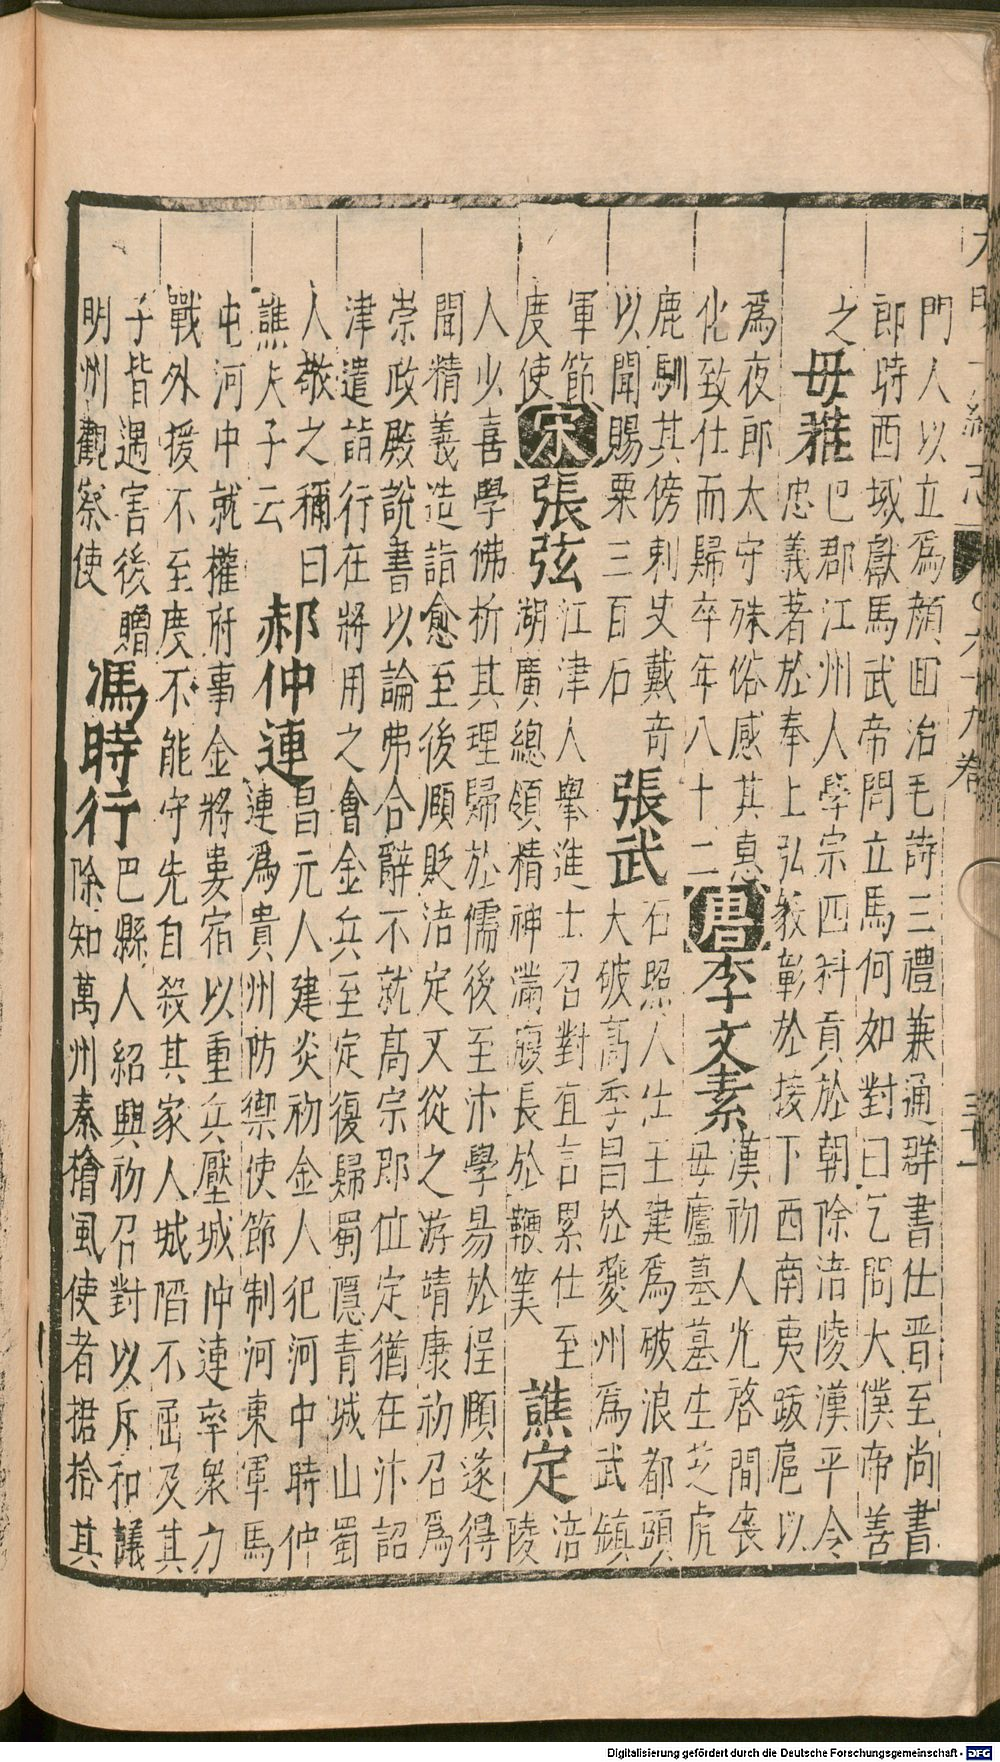 大明一統志
六十九卷
三十一
門人以立爲顏回治毛詩三禮兼通群書仕晋至尚書
郎時西域獻馬武帝問立馬何如對曰乞問大僕帝善
之
毋雅
巴郡江州人學宗四科貢於朝除涪陵漢平令
忠義著於奉上弘毅彰於接下西南夷跋扈以
爲夜郎太守殊俗感其惠
化致仕而歸卒年八十二
唐
李文素
漢初人光啓間丧
母廬墓墓生芝虎
鹿馴其傍刺史戴奇
以聞賜粟三百石
張武
石照人仕王建爲破浪都頭
大破高季昌於夔州爲武鎮
軍節
度使
宋
張弦
江津人舉進士召對直言累仕至
湖廣總領精神滿腹長於鞭筭
譙定
涪
陵
人少喜學佛析其理歸於儒後至汴學易於程頤遂得
聞精義造詣愈至後頤貶涪定又從之游靖康初召爲
崇政殿說書以論弗合辭不就高宗即位定猶在汴詔
津遣詣行在將用之會金兵至定復歸蜀隱青城山蜀
人敬之稱曰
譙夫子云
郝仲連
昌元人建炎初金人犯河中時仲
連爲貴州防禦使節制河東軍馬
屯河中就權府事金將婁宿以重兵壓城仲連率衆力
戰外援不至度不能守先自殺其家人城陷不屈及其
子皆遇害後贈
明州觀察使
馮時行
巴縣人紹興初召對以斥和議
除知萬州秦檜風使者捃拾其
Digitalisierung gefördert durch die Deutsche Forschungsgemeinschaft - DFG